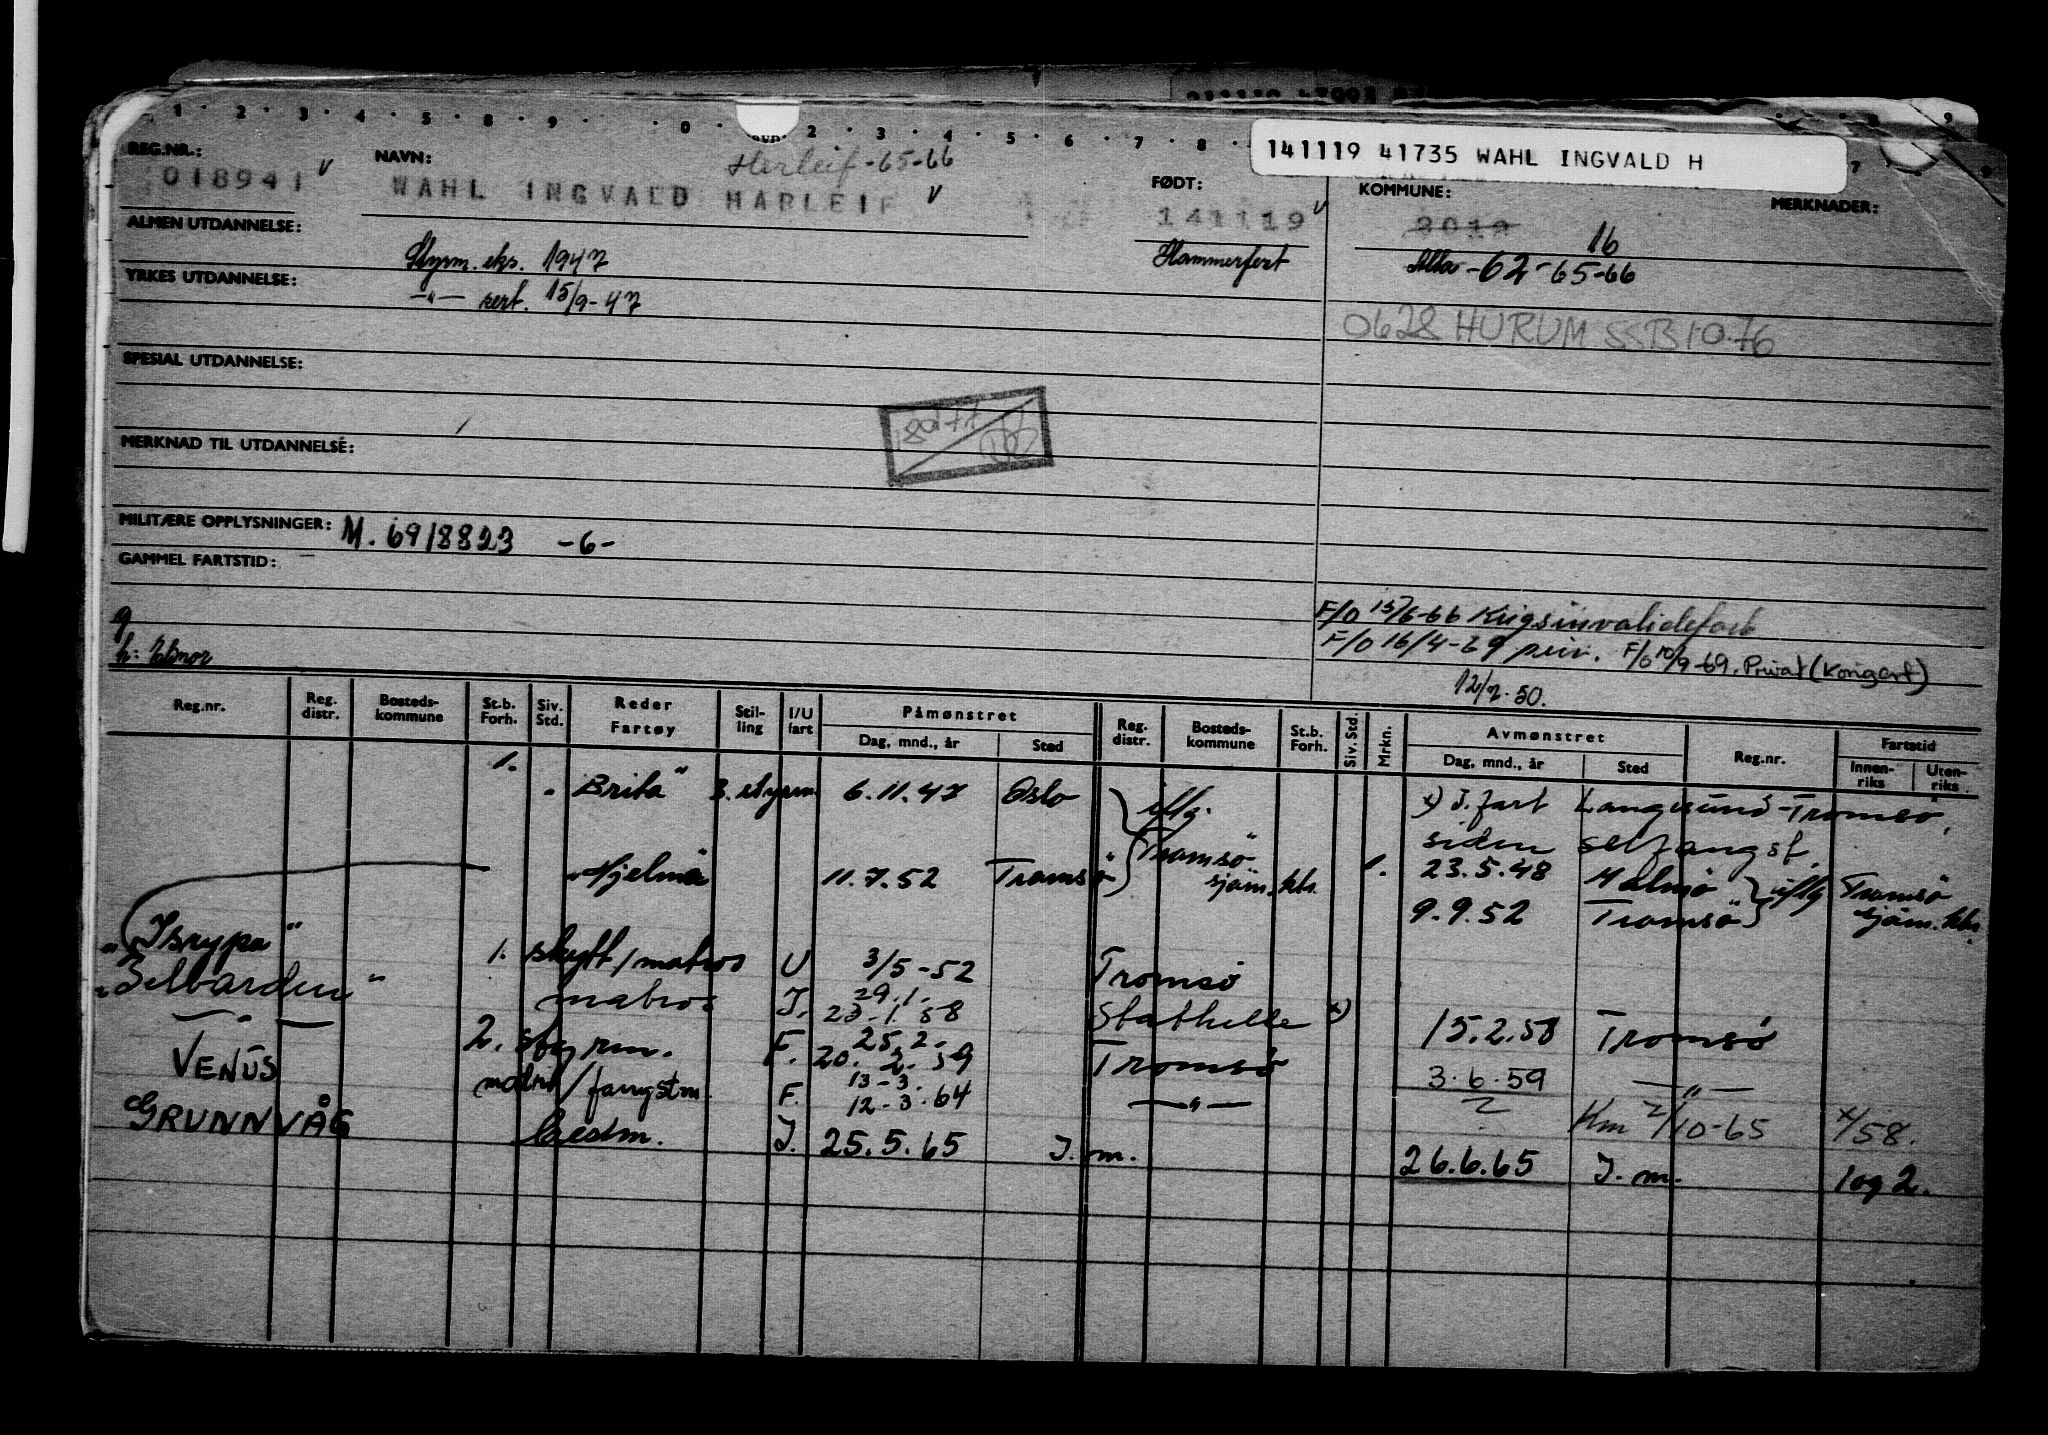 141119 41735 WAHL INGVALD H
REG.NR.: 018941 v
NAVN: Harleif -65-66
WAHL INGVALD HARLEIF v
FØDT: 141119 v
Hammerfest
KOMMUNE: 2012 16
Alta -62-65-66
MERKNADER:
0628 HURUM SSB 10.76
ALMEN UTDANNELSE:
Styrm. eks. 1947
YRKES UTDANNELSE:
-"- sert. 15/9-47
SPESIAL UTDANNELSE:
MERKNAD TIL UTDANNELSE:
MILITÆRE OPPLYSNINGER: M. 6918823 -6-
GAMMEL FARTSTID:
F/O 15/6-66 Krigsinvalidefork
F/O 16/4-69 priv. F/O 10/9-69. Privat (Korigert)
12/2-50.
Reg.nr. Reg. distr. Bosteds-kommune St.b. Forh. Siv. Std. Reder Fartøy Stil-ling I/U fart Påmønstret Dag, mnd., år Sted Reg. distr. Bosteds-kommune St.b. Forh. Siv. Std. Mrkn. Avmønstret Dag, mnd., år Sted Reg.nr. Fartstid Innen-riks Uten-riks
1. "Brita" 3. styrm. 6.11.47 Oslo iflg. x) I. fart Langesund-Tromsø,
siden selfangst,
"Hjelmø" 11.7.52 Tromsø Tromsø sjøm.ktr. 1. 23.5.48 Malmø iflg Tromsø
9.9.52 Tromsø sjøm.ktr.
"Isrypa" 1. skytt/matros U 3/5-52 Tromsø
"Selbarden" matros I. 29.1. 23.1.58 Stathelle x) 15.2.58 Tromsø
-"- 2. styrm. F. 25.2. 20.2.59 Tromsø 3.6.59 -"-
VENUS matros/fangstm. F. 13-3. 12-3.64 -"- ? Km 2/10-65 x/58.
GRUNNVÅG bestm. I. 25.5.65 I. m. 26.6.65 I. m. 1 og 2.